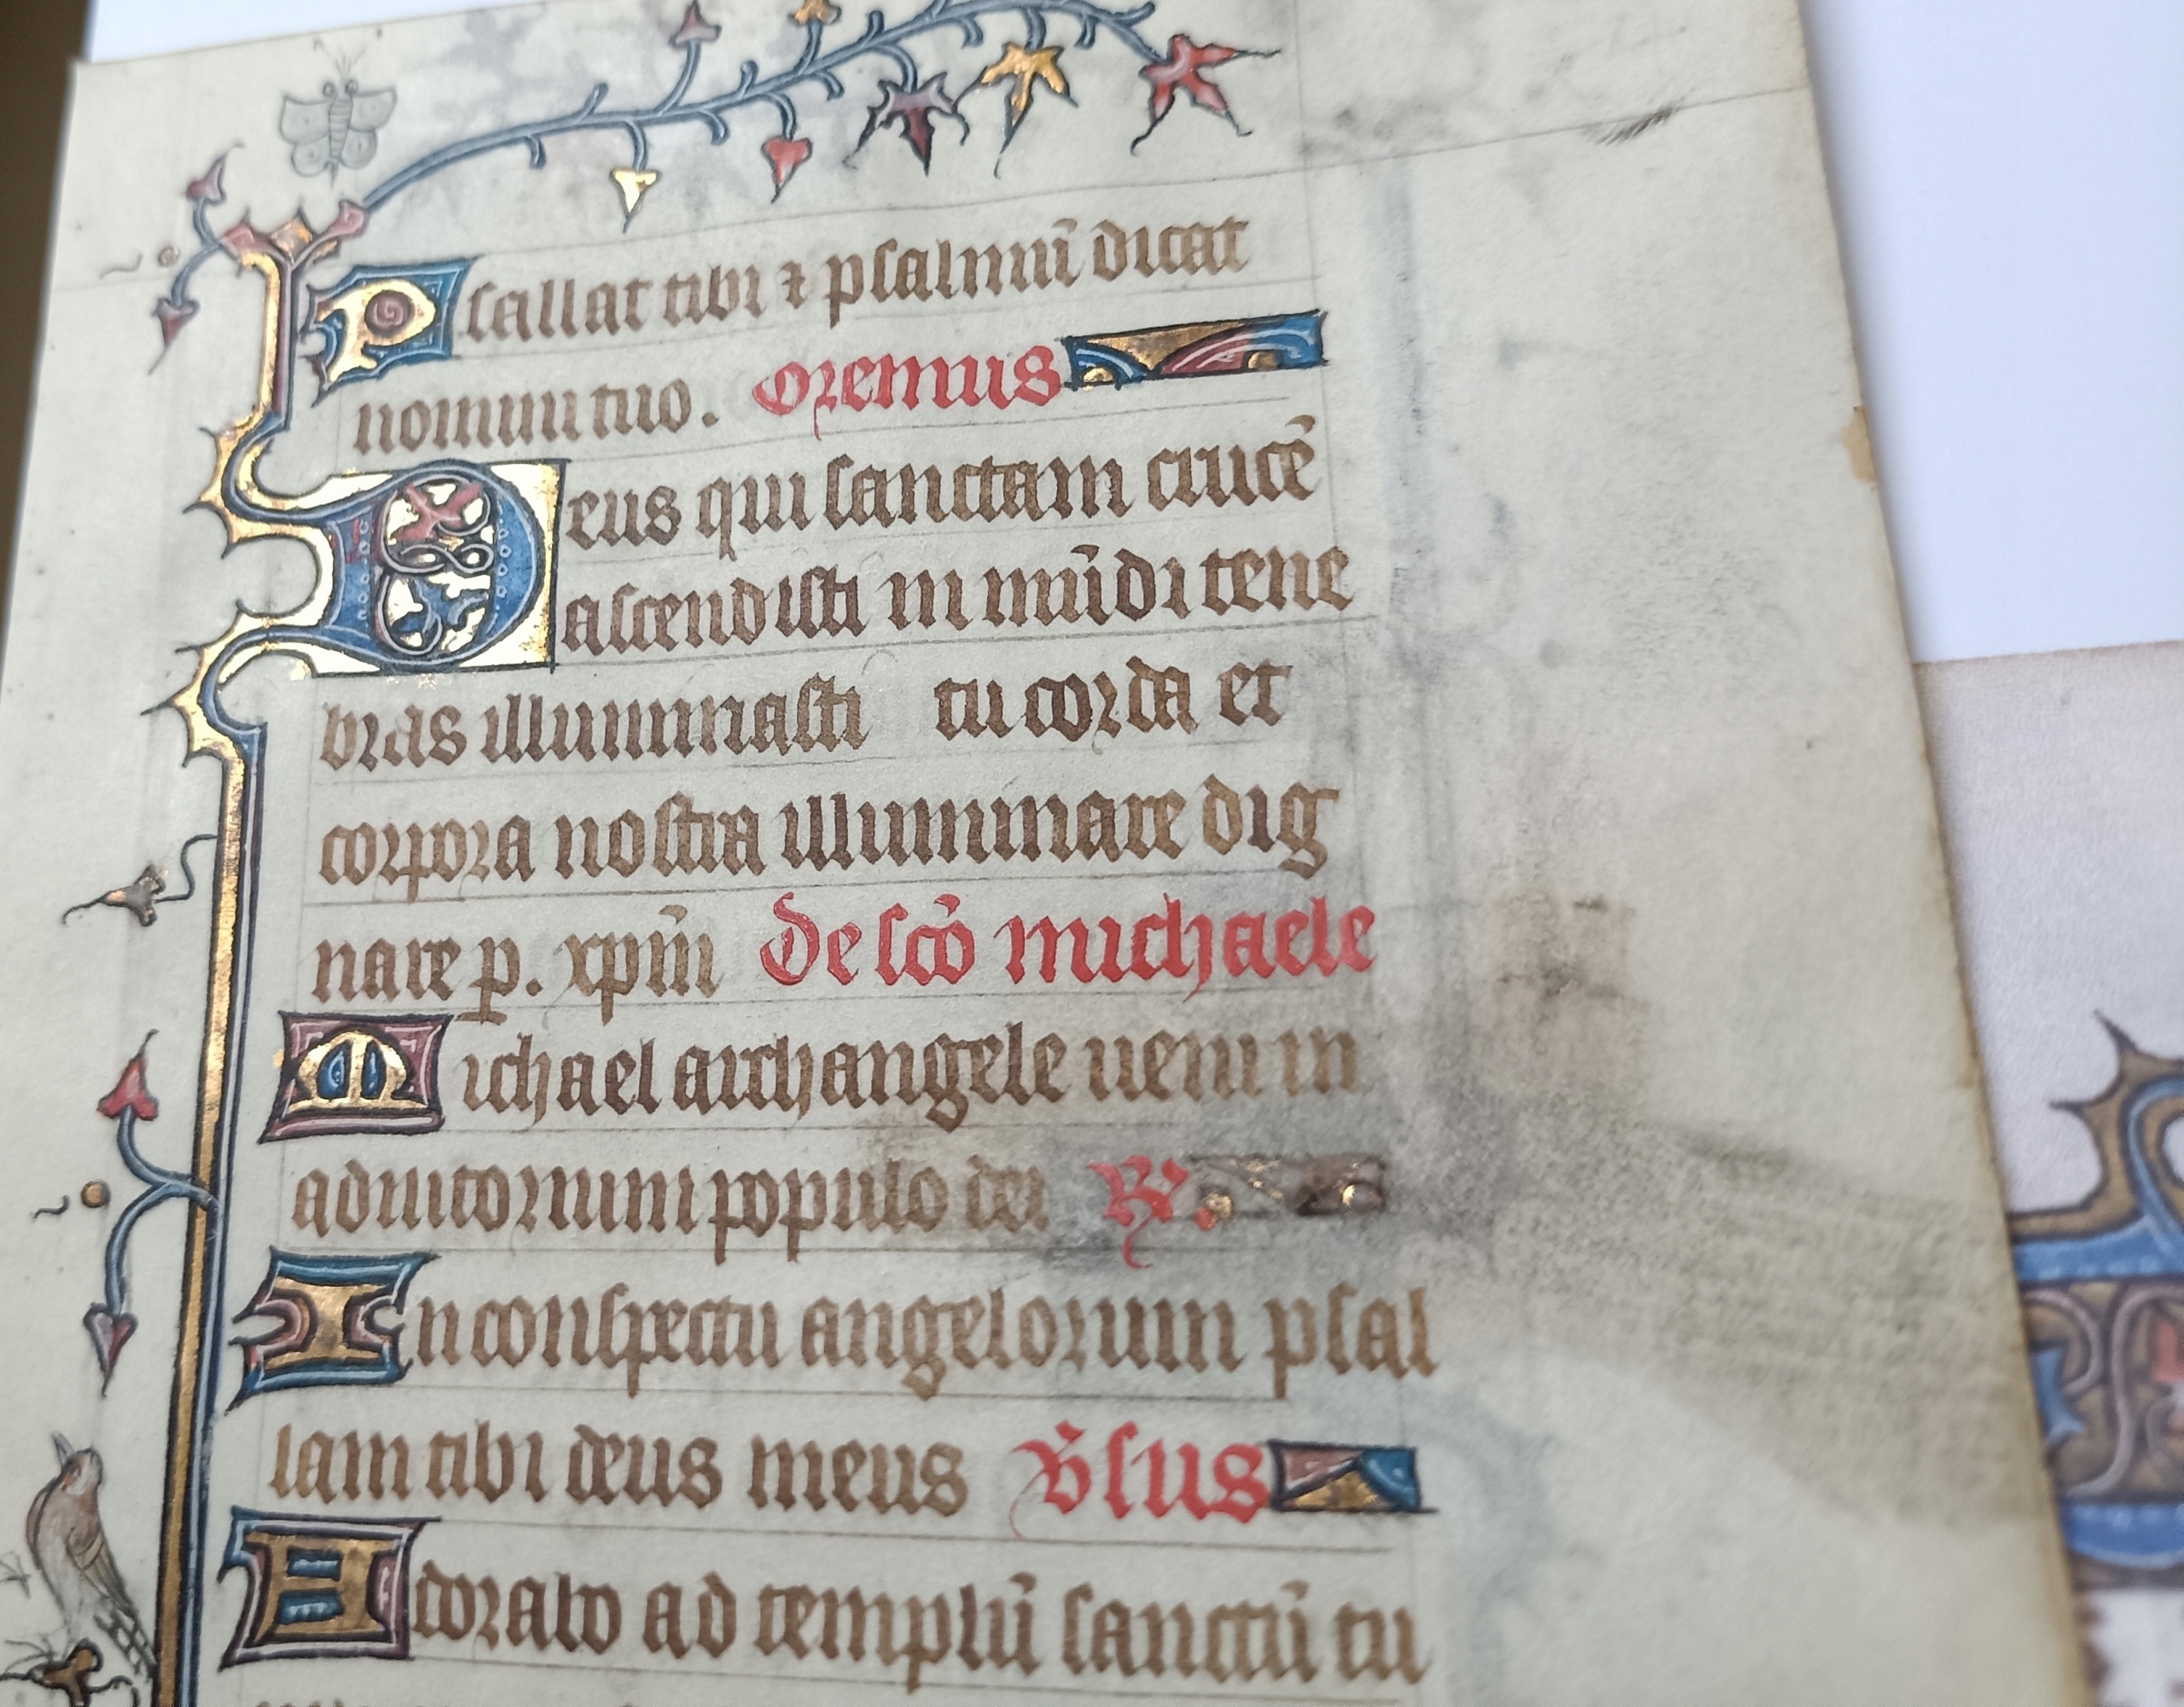 Psallat tibi ⁊ psalmū dicat
nomini tuo. Oremus
Deus qui sanctam crucē
ascendisti in mūdi tene
bras illuminasti tu corda et
corpora nostra illuminare dig
nare p. xpm̄ De sco̅ michaele
Michael archangele ueni in
adiutorium populo dei R̸.
In conspectu angelorum psal
lam tibi deus meus V̸sus
Adorabo ad templū sanctū tu